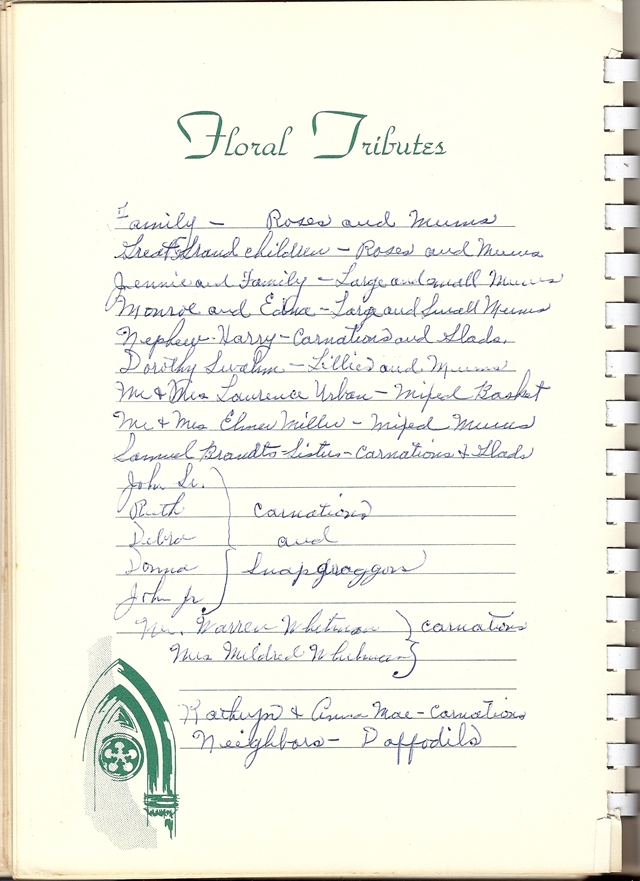 Floral Tributes
Family - Roses and Mums
Great Grand children - Roses and Mums
Jennie and Family - Large and small Mums
Monroe and Edna - Large and Small Mums
Nephew-Harry - Carnations and Glads.
Dorothy Swahm - Lillies and Mums
Mr & Mrs Laurence Urban - Mixed Basket
Mr & Mrs Elmer Miller - Mixed Mums
Samuel Brandts Sisters - Carnations & Glads
John Sr.
Ruth Carnations
Debra and
Donna Snapgraggons
John Jr
Mr. Warren Whitman Carnations
Mrs Mildred Whitman
Kathryn & Anna Mae - Carnations
Neighbors - Daffodils